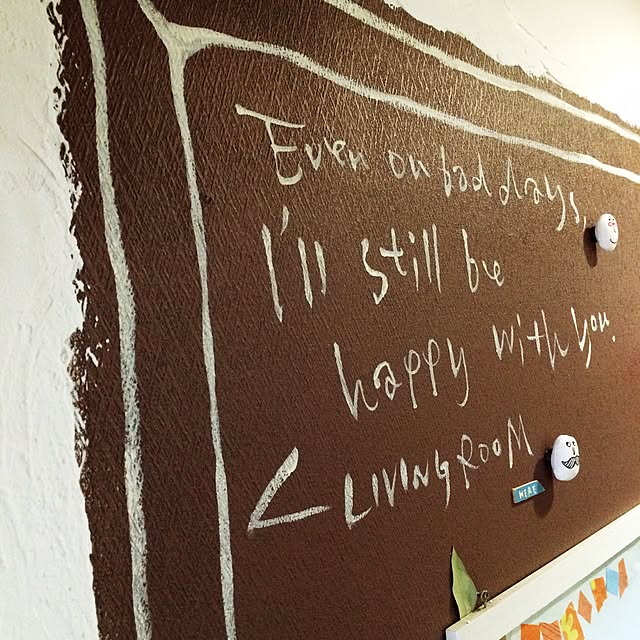 Even on bad days,
I'll still be
happy with you.
< LIVING ROOM
HERE